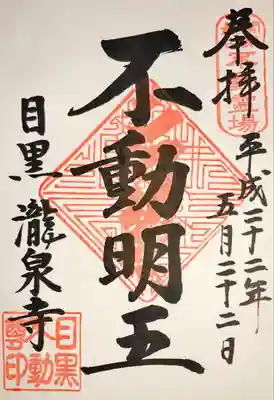 奉拝
平成二十二年
五月二十二日
不動明王
目黒
瀧泉寺
目黒
不動
尊印